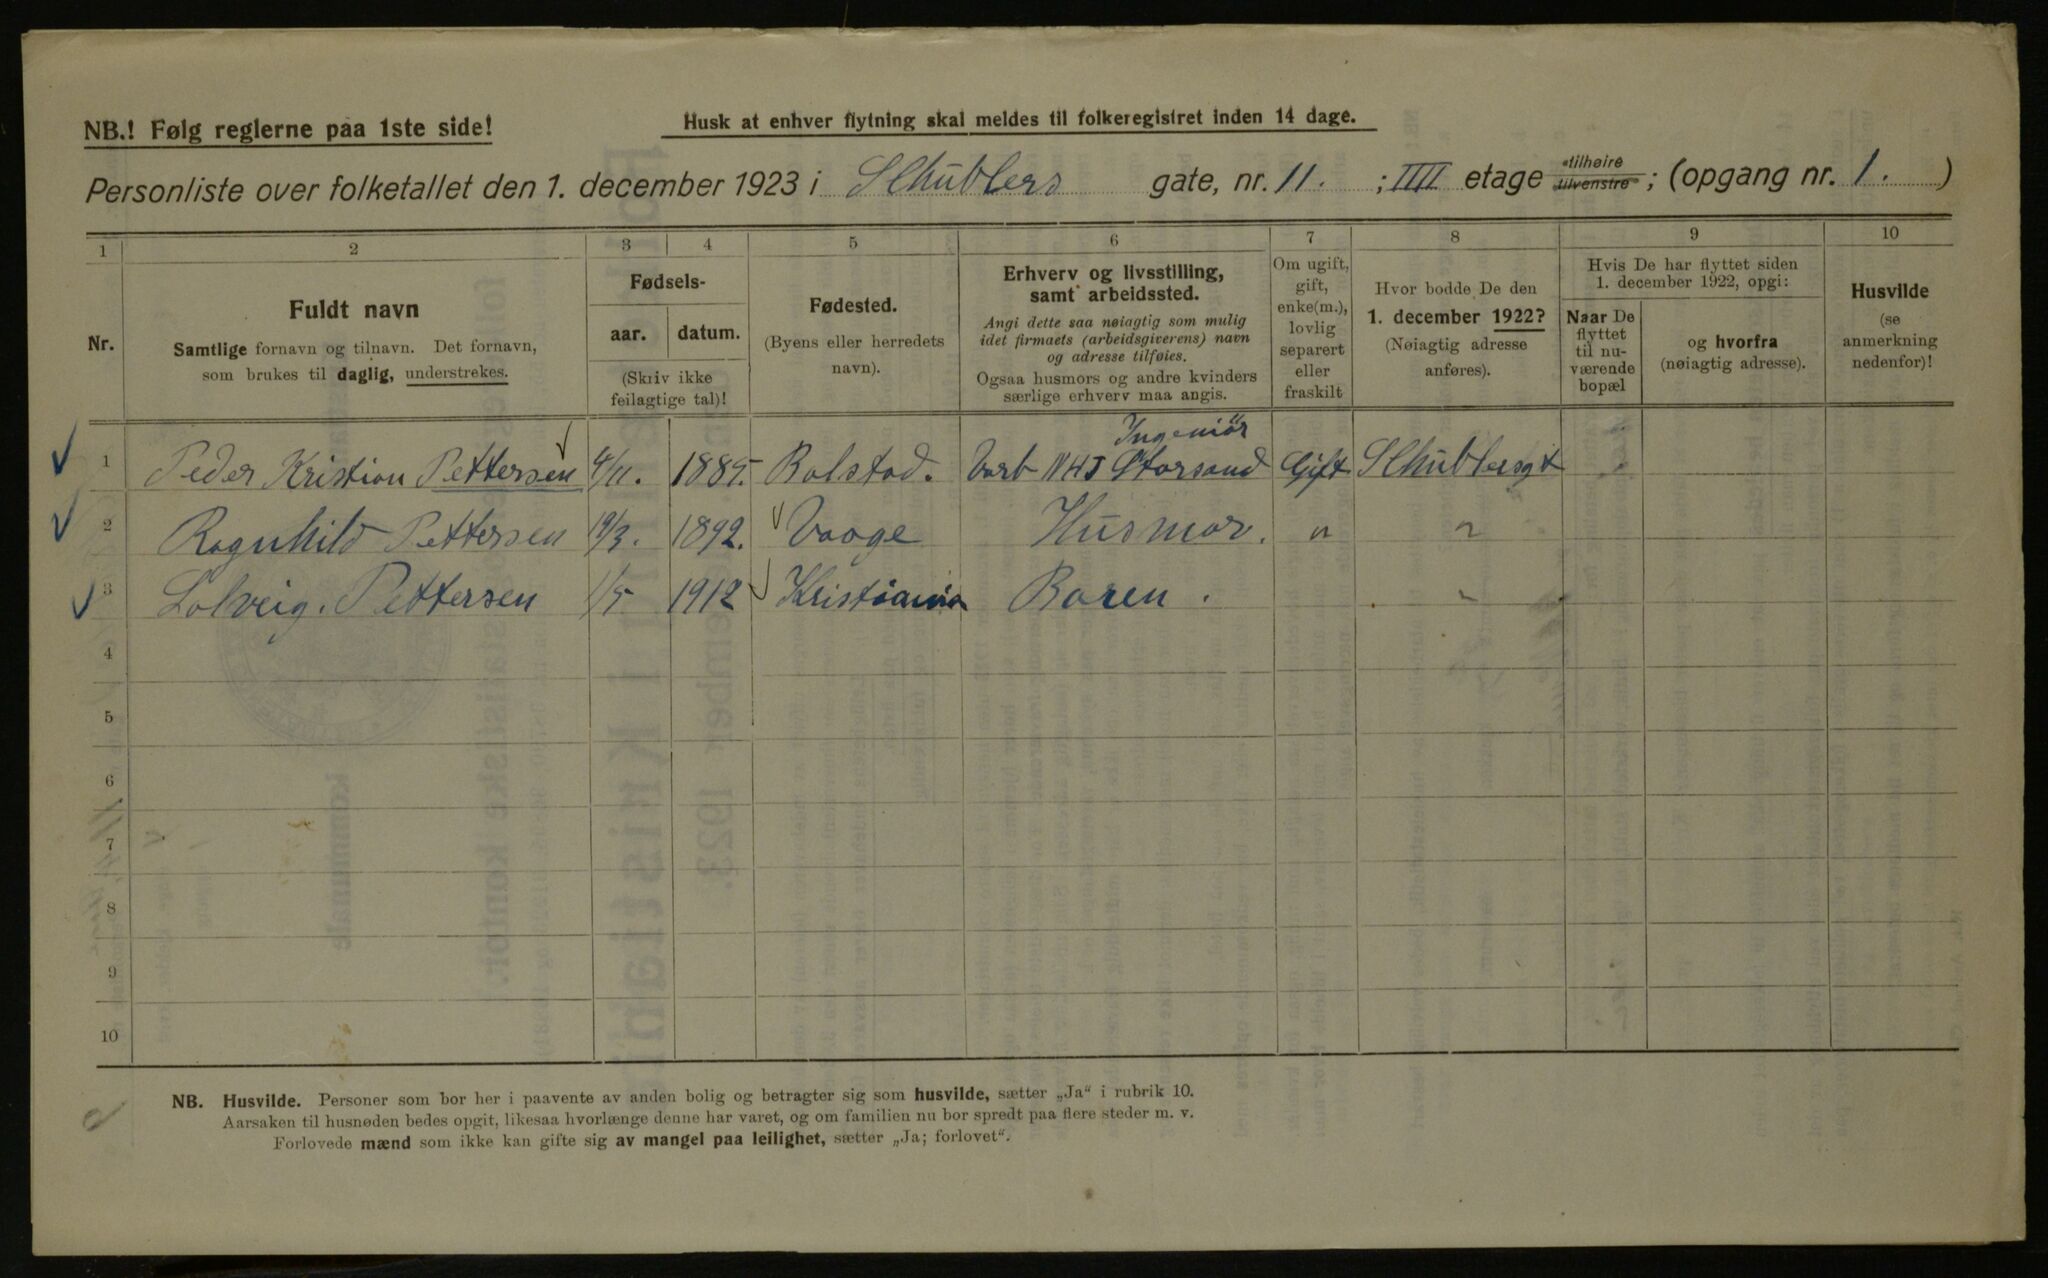 NB.! Følg reglerne paa 1ste side!
Husk at enhver flytning skal meldes til folkeregistret inden 14 dage.
Personliste over folketallet den 1. december 1923 i Schüblers gate, nr. 11. ; IIII etage "tilhøire "tilvenstre" ; (opgang nr. 1. )
1 2 3 4 5 6 7 8 9 10
Nr.
Fuldt navn
Samtlige fornavn og tilnavn. Det fornavn,
som brukes til daglig, understrekes.
Fødsels-
aar. datum.
(Skriv ikke
feilagtige tal)!
Fødested.
(Byens eller herredets
navn).
Erhverv og livsstilling,
samt arbeidssted.
Angi dette saa nøiagtig som mulig
idet firmaets (arbeidsgiverens) navn
og adresse tilføies.
Ogsaa husmors og andre kvinders
særlige erhverv maa angis.
Om ugift,
gift,
enke(m.),
lovlig
separert
eller
fraskilt
Hvor bodde De den
1. december 1922?
(Nøiagtig adresse
anføres).
Hvis De har flyttet siden
1. december 1922, opgi:
Naar De
flyttet
til nu-
værende
bopæl
og hvorfra
(nøiagtig adresse).
Husvilde
(se
anmerkning
nedenfor)!
Ingeniör
1 Peder Kristian Pettersen 4/11. 1885. Bolstad. Storsand Gift Schüblersgt
2 Ragnhild Pettersen 19/3. 1892. Vaage Husmor. " "
3 Solveig. Pettersen 1/5 1912 Kristiania Baren. "
4
5
6
7
8
9
10
NB. Husvilde. Personer som bor her i paavente av anden bolig og betragter sig som husvilde, sætter „Ja" i rubrik 10.
Aarsaken til husnøden bedes opgit, likesaa hvorlænge denne har varet, og om familien nu bor spredt paa flere steder m. v.
Forlovede mænd som ikke kan gifte sig av mangel paa leilighet, sætter „Ja; forlovet".